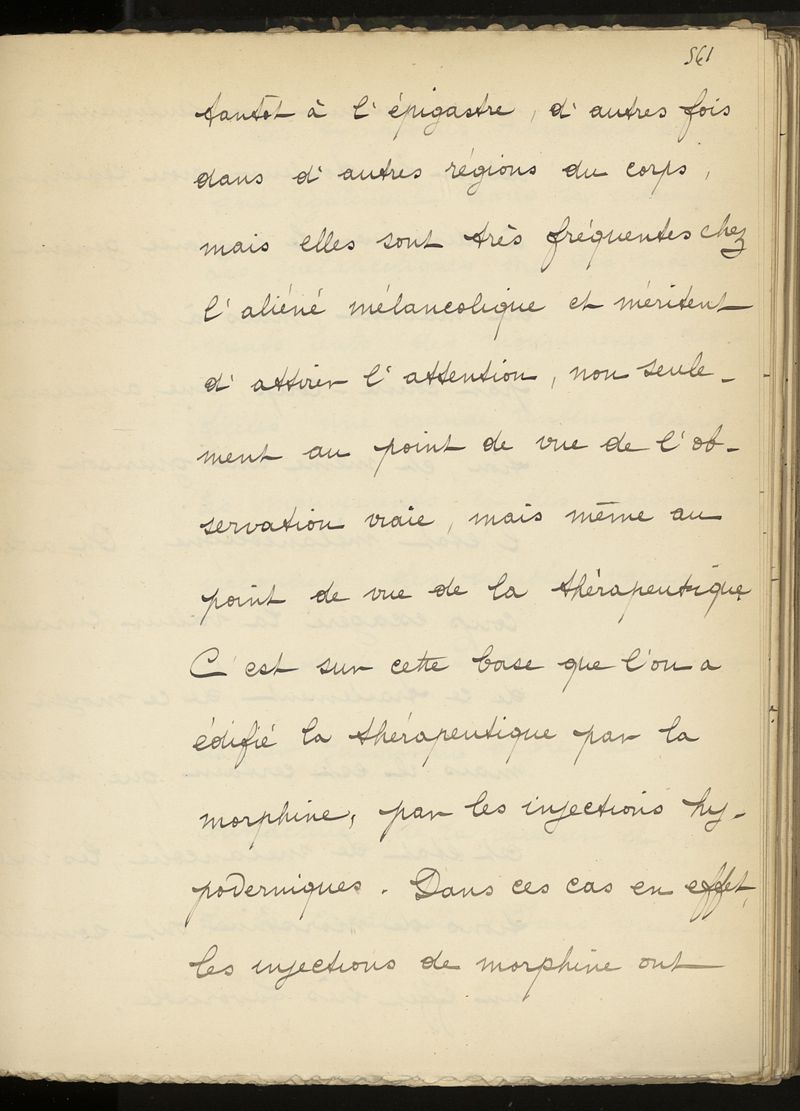 561
tantôt à l'épigastre, d'autres fois
dans d'autres régions du corps,
mais elles sont très fréquentes chez
l'aliéné mélancolique et méritent
d'attirer l'attention, non seule-
ment au point de vue de l'ob-
servation vraie, mais même au
point de vue de la thérapeutique
C'est sur cette base que l'on a
édifié la thérapeutique par la
morphine, par les injections hy-
podermiques. Dans ces cas en effet,
les injections de morphine ont